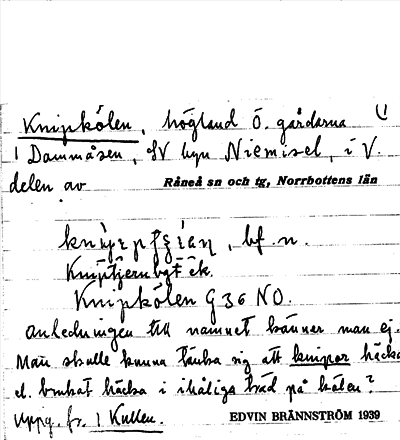 Knipkölen, högland Ö. gårdarna
i Dammåsen, SV byn Niemisel, i V.
delen av Råneå sn och tg, Norrbottens län
, bf. n.
Knipkölen G 36 NO.
Anledningen till namnet känner man ej.
Man skulle kunna tänka sig att knipor häcka
el. brukat häcka i ihåliga träd på kölen?
Uppg. fr. 1 Kullen. EDVIN BRÄNNSTRÖM 1939